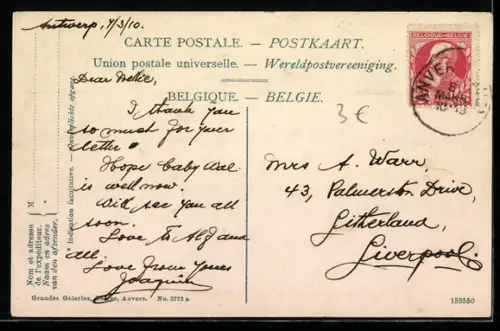 Antwerp, 7/3/10.
CARTE POSTALE. — POSTKAART.
Union postale universelle. — Wereldpostvereeniging.
BELGIQUE. — BELGIE.
Dear Nellie,
I thank you
so much for your
letter
Hope baby Wal
is well now.
Will see you all
soon.
Love to Alf and
all
Love from yours
Joaquin
3€
Mrs A. Warr,
43, Palmerston Drive,
Litherland,
Liverpool.
BELGIQUE·BELGIË
ANVERS
MARS
M
* Indication facultative. — Onverplichte opgave.
Nom et adresse
de l'expéditeur.
Naam en adres
van den afzender.
Grandes Galeries, Anvers. No. 3773 a.
153550